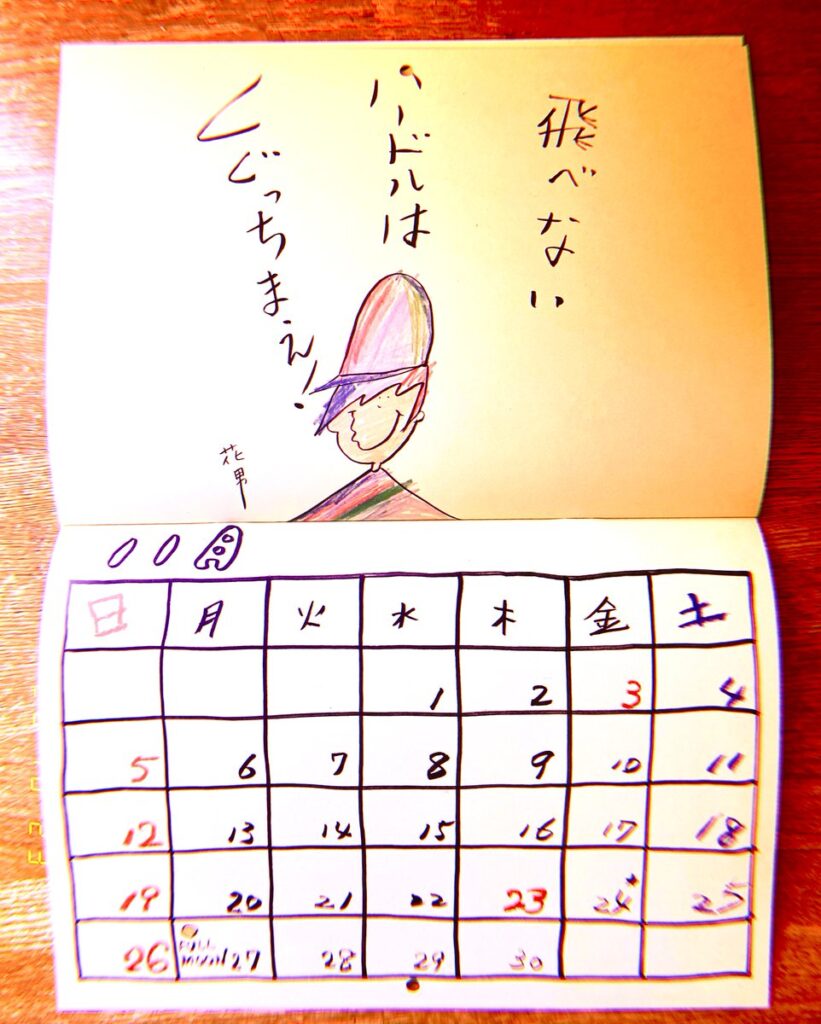 飛べない
ハードルは
くぐっちまえ!
花男
11月
日 月 火 水 木 金 土
1 2 3 4
5 6 7 8 9 10 11
12 13 14 15 16 17 18
19 20 21 22 23 24 25
26 FULL MOON 27 28 29 30